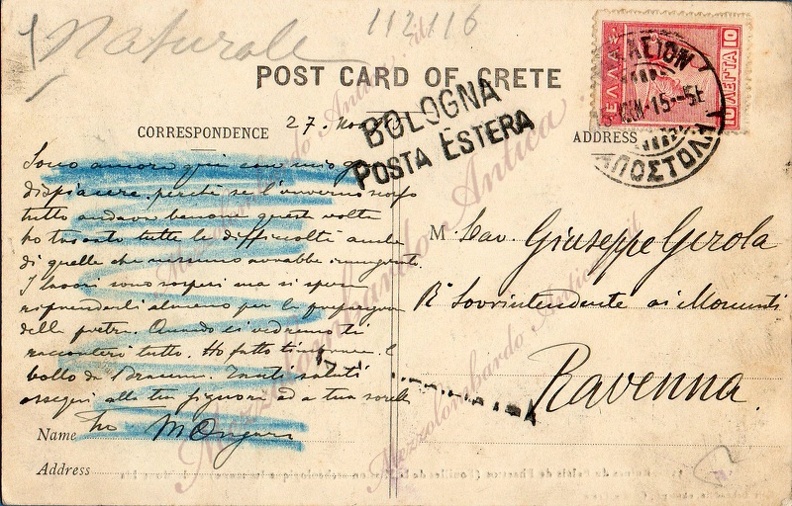 Naturale
112116
POST CARD OF CRETE
ΕΛΛΑΣ
10 ΛΕΠΤΑ 10
BOLOGNA
POSTA ESTERA
CORRESPONDENCE
27. Nov
ADDRESS
Sono ancora qui con mio
dispiacere perchè se l'inverno scorso
tutto andava benone questa volta
ho trovato tutte le difficoltà anche
di quelle che nessuno avrebbe immaginato.
I lavori sono sospesi ma si spera
riprenderli almeno per la
della pietra. Quando ci vedremo ti
racconterò tutto. Ho fatto
bollo da Tanti saluti
ossequi alla tua signora ed a tua sorella
M Cav. Giuseppe Gerola
R. Sovrintendente ai Monumenti
Ravenna.
Name
Address
Mezzolombardo Antica
Mezzolombardo Antica